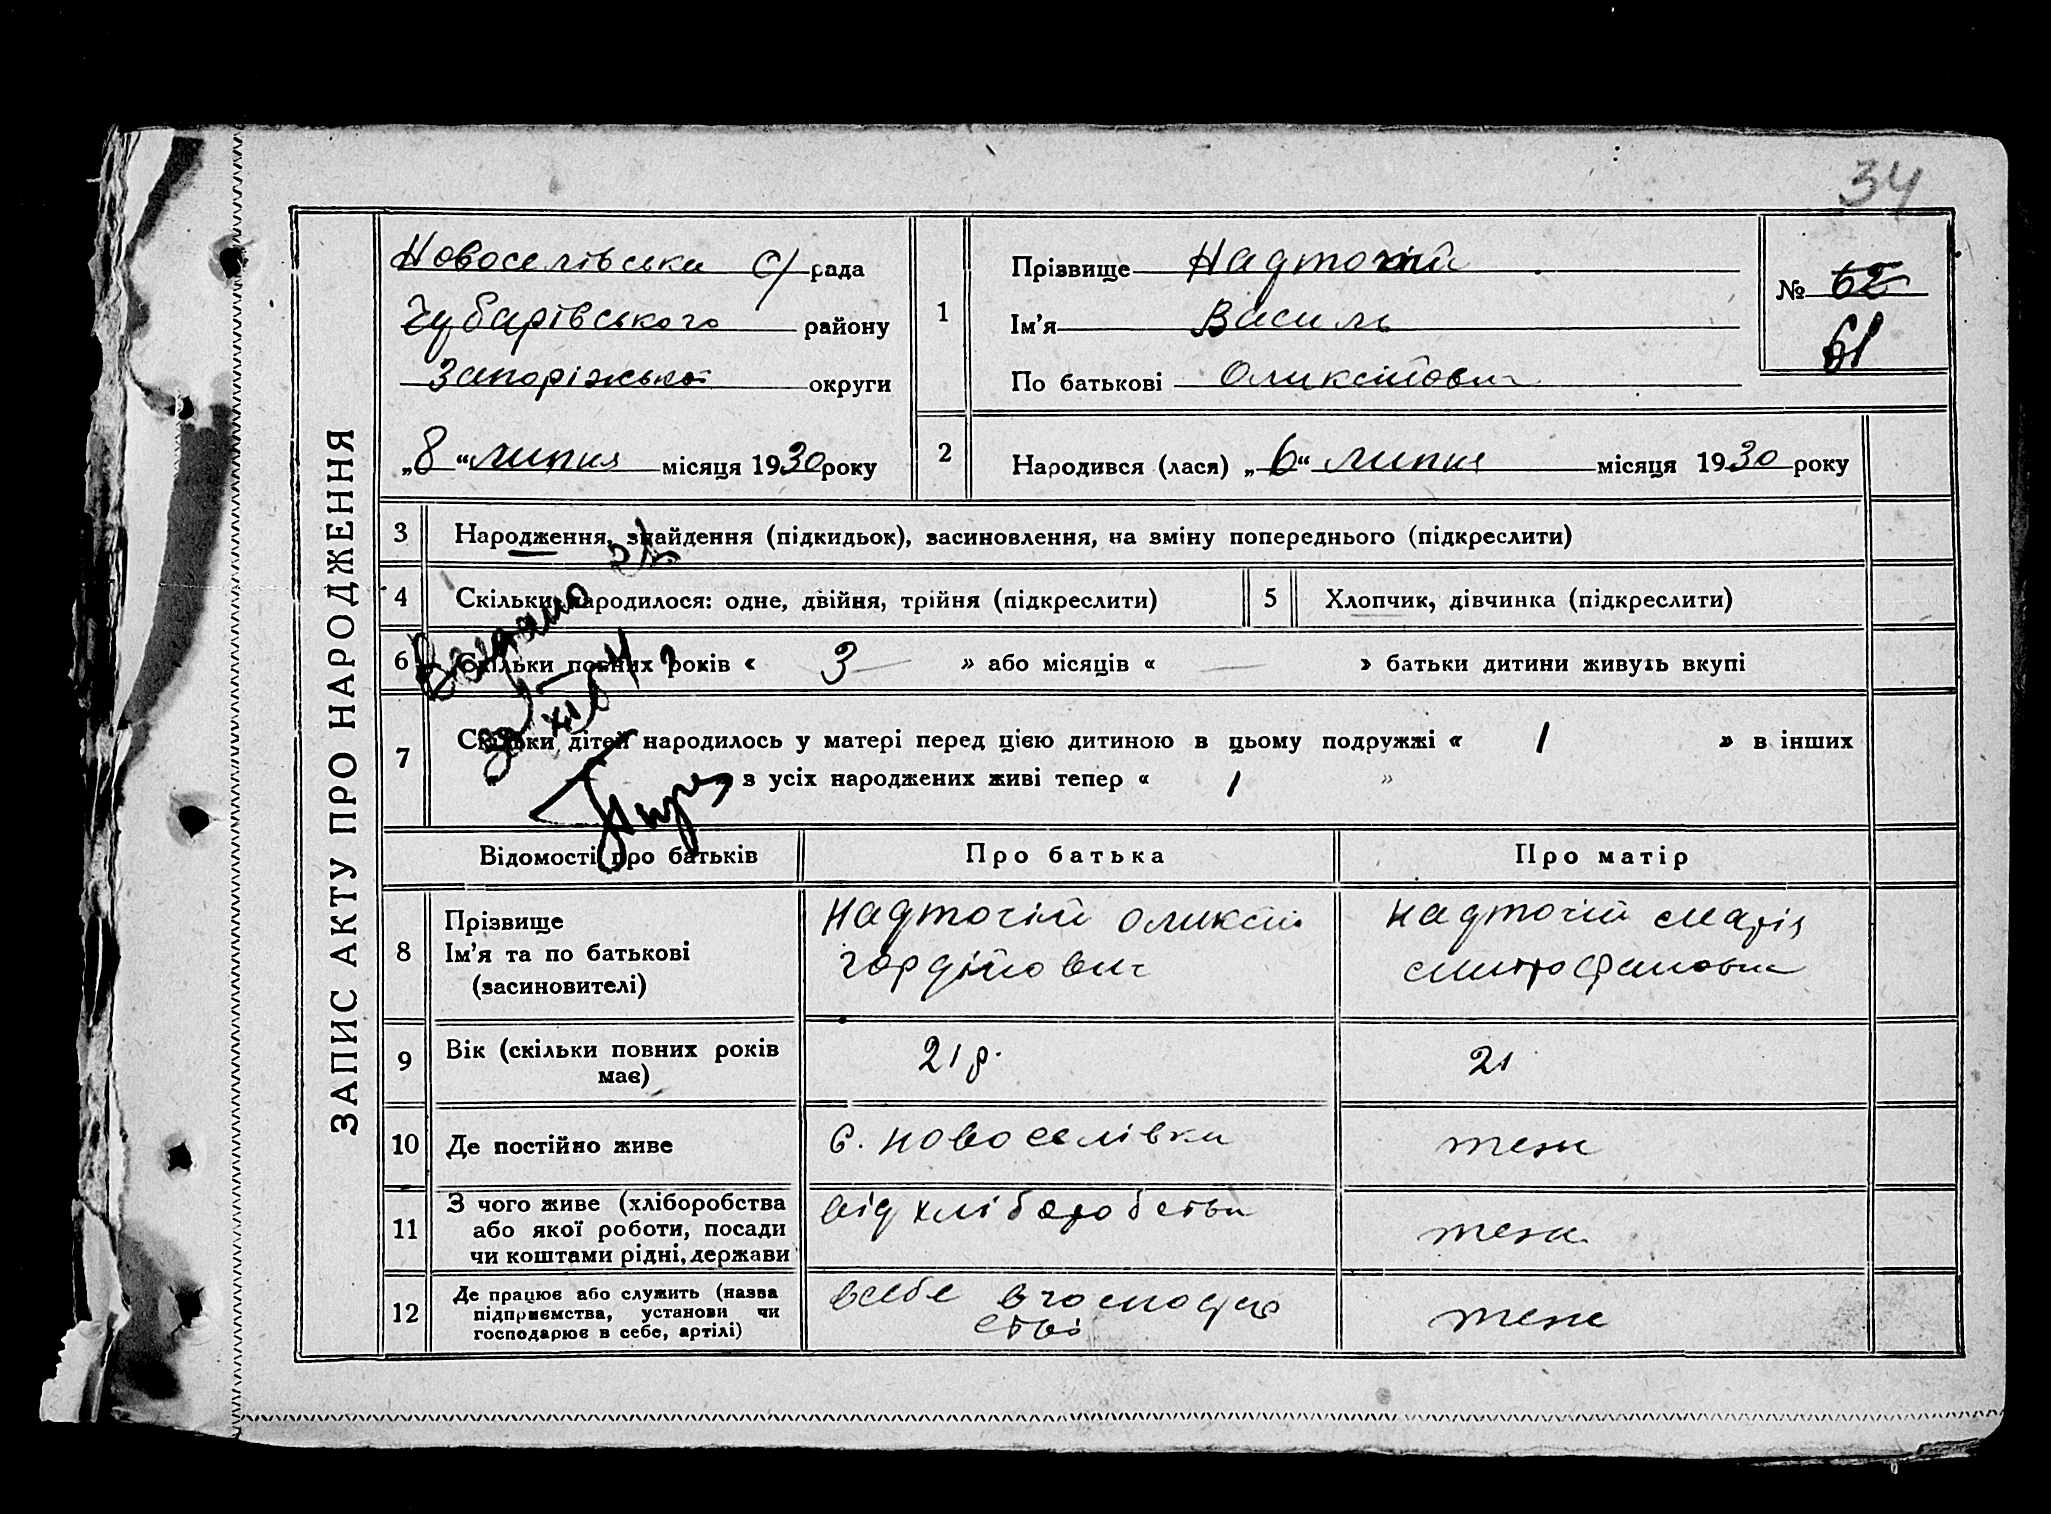 34
ЗАПИС АКТУ ПРО НАРОДЖЕННЯ
Новоселівська с/рада
Чубарівського району
Запоріжської округи
„8“ липня місяця 1930 року
1
Прізвище Надточій
Ім’я Василь
По батькові Оликсійович
№ 62
61
2 Народився (лася) „6“ липня місяця 1930 року
3 Народження, знайдення (підкидьок), засиновлення, на зміну попереднього (підкреслити)
4 Скільки народилося: одне, двійня, трійня (підкреслити) 5 Хлопчик, дівчинка (підкреслити)
6 Скільки повних років « 3 » або місяців « — » батьки дитини живуть вкупі
7 Скільки дітей народилось у матері перед цією дитиною в цьому подружжі « 1 » в інших
з усіх народжених живі тепер « 1 »
Видано
Відомості про батьків Про батька Про матір
8 Прізвище
Ім’я та по батькові
(засиновителі)
Надточій Оликсій
Гордійович
Надточій Марія
Митрофановна
9 Вік (скільки повних років
має)
21 р.
21
10 Де постійно живе с. Новоселівка теж
11 З чого живе (хліборобства
або якої роботи, посади
чи коштами рідні, держави
від хліборобства
теж
12 Де працює або служить (назва
підприємства, установи чи
господарює в себе, артілі)
всебе вгосподар
стві
теж